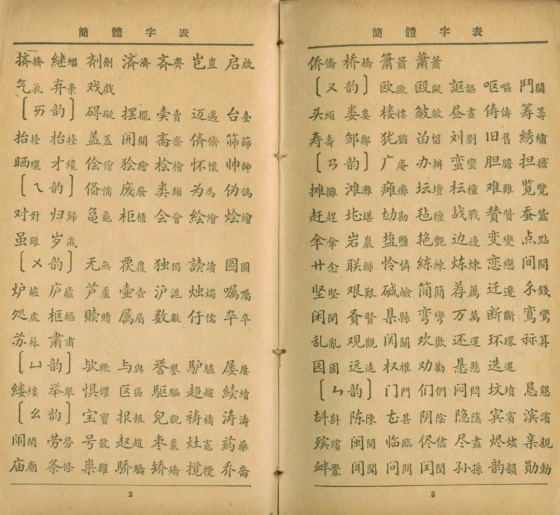 簡體字表
挤擠 继繼 剂劑 済濟 斉齊 岂豈 启啟
气氣 弃棄 戏戲
〔ㄞ韵〕 碍礙 摆擺 卖賣 迈邁 台臺
抬擡 枱檯 盖蓋 开開 斋齋 侪儕 筛篩
晒曬 才纔 侩儈 桧檜 怀懷 帅帥
〔ㄟ韵〕 俻備 废廢 类類 为爲 伪偽
对對 归歸 亀龜 柜櫃 会會 絵繪 烩燴
虽雖 岁歲
〔ㄨ韵〕 无無 独獨 読讀 图圖
炉爐 庐廬 芦蘆 壶壺 沪滬 烛燭 嘱囑
処處 枢樞 赎贖 属屬 数數
苏蘇 肃肅
〔ㄩ韵〕 欤歟 与與 誉譽 驴驢 屡屢
缕縷 举舉 惧懼 区區 駆驅 趋趨 続續
〔ㄠ韵〕 宝寶 报報 祷禱 涛濤
闹鬧 劳勞 号號 赵趙 枣棗 灶竈 药藥
庙廟 条條 骄驕 矫矯 搅攪 乔喬
2
簡體字表
侨僑 桥橋 箫簫 萧蕭
〔ㄡ韵〕 欧歐 殴毆 讴謳 呕嘔 鬥鬭
头頭 娄婁 楼樓 皱皺 昼晝 俦儔 筹籌
寿壽 邹鄒 犹猶 留 刘劉 旧舊 綉繡
〔ㄢ韵〕 广庵 办辦 蛮蠻 胆膽 担擔
摊攤 滩灘 瘫癱 坛壇 坛罎 难難 览覽
赶趕 勘 毡氈 战戰 賛贊 蚕蠶
伞傘 岩巖 盐鹽 艳艷 边邊 变變 点點
廿 联聯 怜憐 练練 炼煉 恋戀 间間
坚堅 艰艱 碱鹼 简簡 荐薦 迁遷
闲閒 贤賢 县縣 弯彎 万萬 断斷 鸾鸞
乱亂 观觀 关關 欢歡 还還 环環 算
园園 远遠 权權 劝勸 悬懸 选選
〔ㄣ韵〕 门門 们們 闷悶 坟墳 恳懇
斟 陈陳 甚 阴陰 隐隱 宾賓 滨濱
殡殯 闽閩 临臨 侭儘 尽盡 烬燼 亲親
衅釁 闻聞 问問 闰閏 孙孫 韵韻 勋勳
3